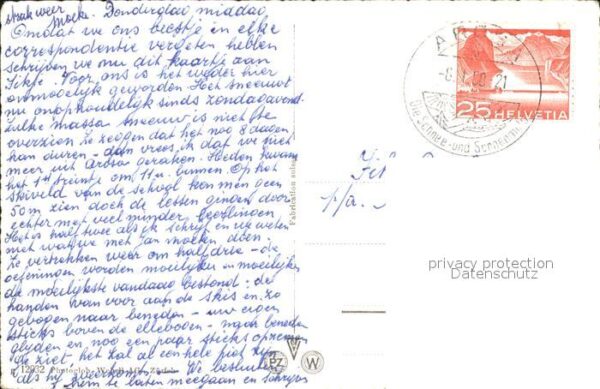 straks weer Moeke. Donderdag middag
Omdat we ons beestje en elke
correspondentie vergeten hebben
schrijven we nu dit kaartje aan
Sikje. Voor ons is het weder hier
onmogelijk geworden. Het sneeuwt
nu onophoudelijk sinds zondagavond
zulke massa sneeuw is niet te
overzien. Ze zeggen dat het nog 8 dagen
kan duren - dan vrees ik dat we niet
meer uit Arosa geraken. Heden kwam
het 1st treintje om 11 u. binnen. Op het
skiveld van de school kon men geen
50 m zien doch de lessen gingen door
echter met veel minder leerlingen
Het is half twee als ik schrijf en we weten
niet wat we met Jan moeten doen.
Ze vertrekken weer om half drie - de
oefeningen worden moeilijker en moeilijker
de moeilijkste vandaag bestond: de
handen van voor aan de skis en zo
gebogen naar beneden - uw eigen
sticks boven de elleboog - naar beneden
glyden en nog een paar sticks
Je ziet het zal al een hele piet zijn
als hij We
hem te laten meegaan en schrijven
12932 Photoglob-Wehrli AG. Zürich
Fabrication suisse
PZ
W
AROSA
21
Die Schnee- und Sonnen
25 HELVETIA
p/a.
privacy protection
Datenschutz